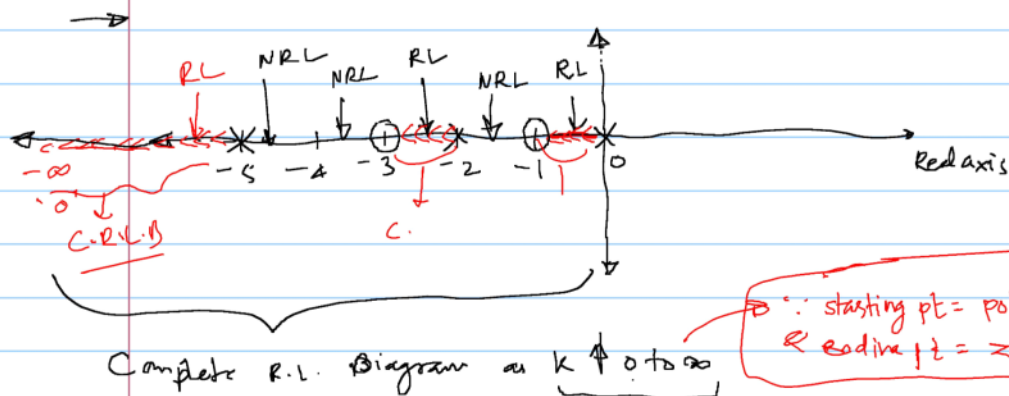 RL NRL NRL RL NRL RL
-∞ -5 -4 -3 -2 -1 0 Real axis
0
C.R.L.B C.
Complete R.L. Diagram as K ↑ 0 to ∞
∵ starting pt = po
& Ending pt = z